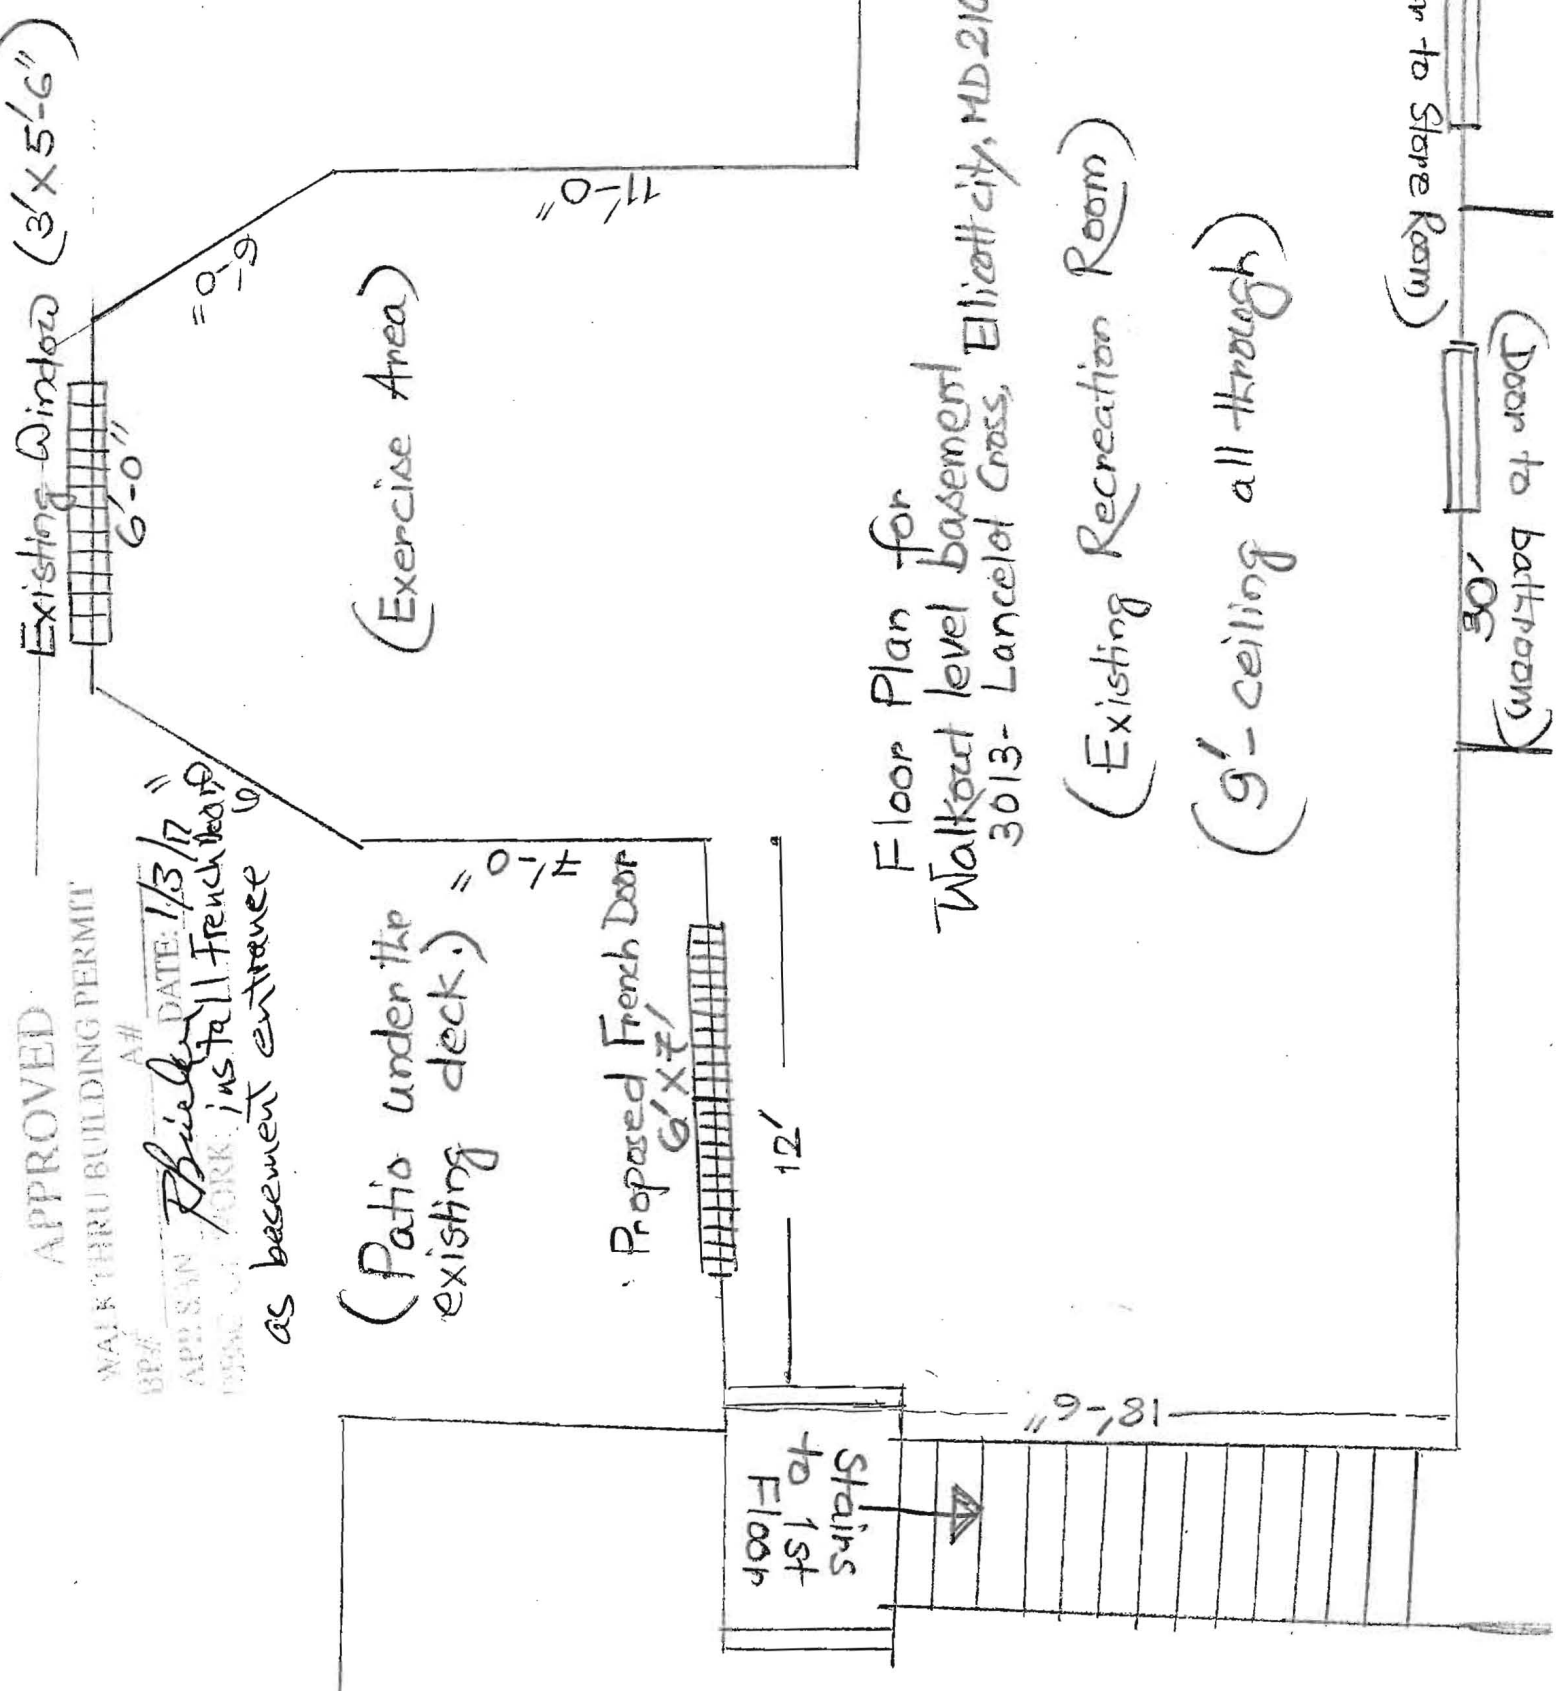 Existing Window (3' X 5'-6")
6'-0"
6'-0"
11'-0"
(Exercise Area)
APPROVED
WALK THRU BUILDING PERMIT
BP# A#
DATE: 1/3/17
WORK: install French Door
as basement entrance
(Patio under the
existing deck.)
7'-0"
Proposed French Door
6' X 7'
12'
Floor Plan for
Walkout level basement
3013- Lancelot Cross, Ellicott city, MD 210
(Existing Recreation Room)
(9'- ceiling all through)
18'-6"
Stairs
to 1st
Floor
to Store Room)
30'
(Door to bathroom)